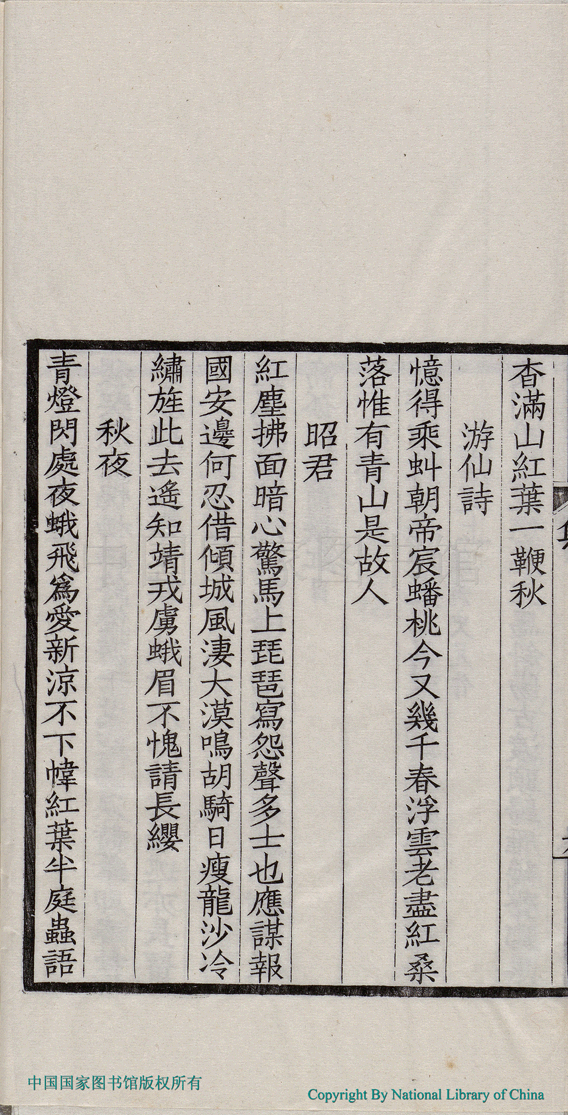 杳滿山紅葉一鞭秋
游仙詩
憶得乘虯朝帝宸蟠桃今又幾千春浮雲老盡紅桑
落惟有青山是故人
昭君
紅塵拂面暗心驚馬上琵琶寫怨聲多士也應謀報
國安邊何忍借傾城風淒大漠鳴胡騎日瘦龍沙冷
繡旌此去遥知靖戎虜蛾眉不愧請長纓
秋夜
青燈閃處夜蛾飛爲愛新涼不下幃紅葉半庭蟲語
中国国家图书馆版权所有
Copyright By National Library of China